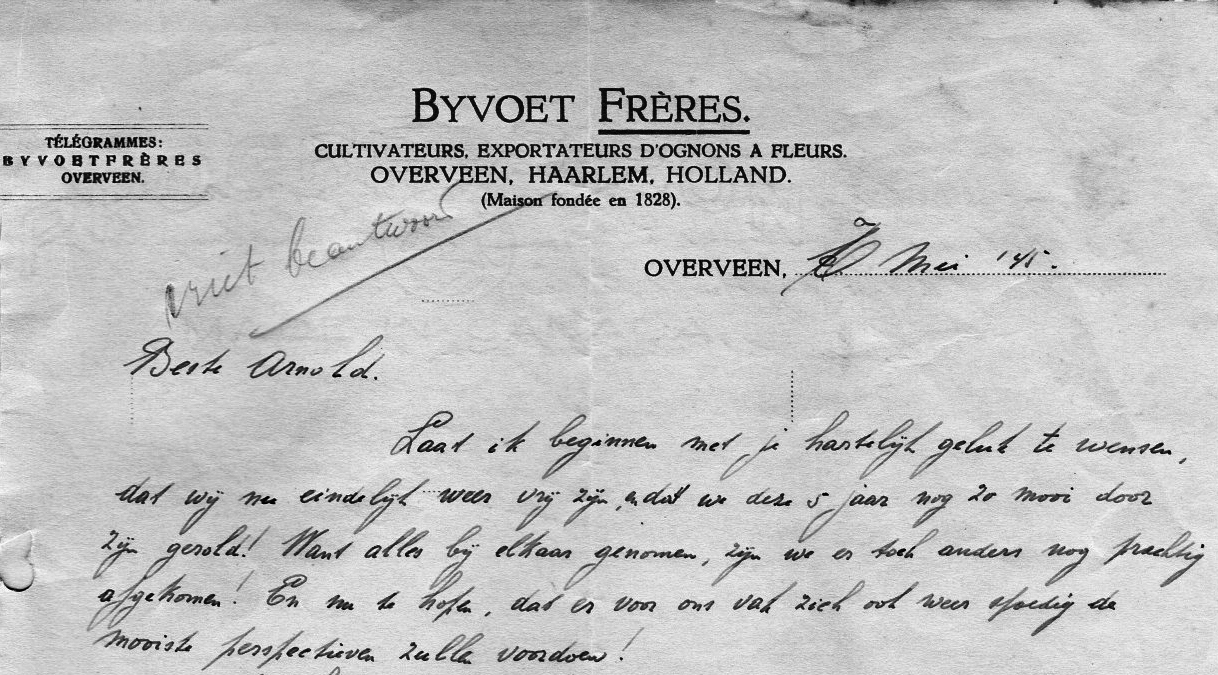 BYVOET FRÈRES.
TÉLÉGRAMMES:
BYVOETFRÈRES
OVERVEEN.
CULTIVATEURS, EXPORTATEURS D'OGNONS A FLEURS.
OVERVEEN, HAARLEM, HOLLAND.
(Maison fondée en 1828).
niet beantwoord
OVERVEEN, Mei '45.
Beste Arnold.
Laat ik beginnen met je hartelijk geluk te wensen,
dat wij nu eindelijk weer vrij zijn, en dat we deze 5 jaar nog zo mooi door
zijn gerold! Want alles bij elkaar genomen, zijn we er toch anders nog prachtig
afgekomen! En nu te hopen, dat er voor ons vak zich ook weer spoedig de
mooiste perspectieven zullen voordoen!